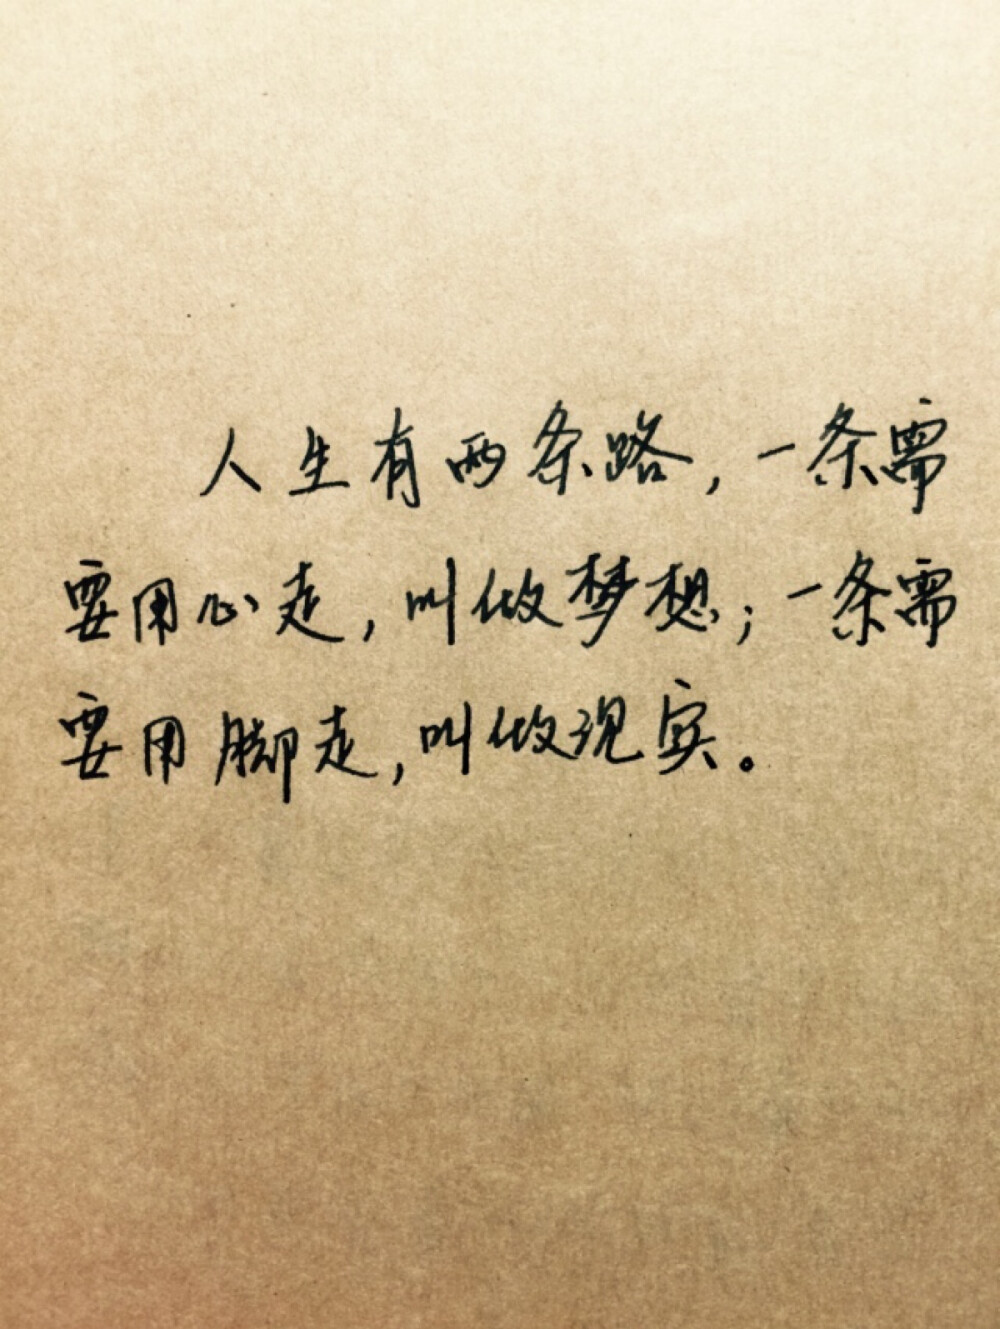 人生有两条路，一条需
要用心走，叫做梦想；一条需
要用脚走，叫做现实。